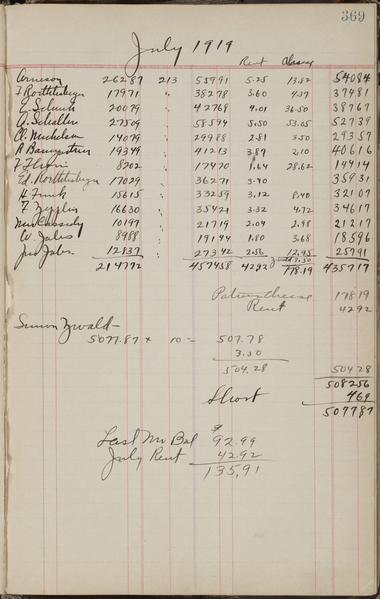 369
July 1919
Rent Cheese
Arneson 26287 213 55991 5.25 13.82 54084
F Roethlisberger 17971 " 38278 3.60 4.37 37481
E Schenk 20079 " 42768 4.01 36.50 38767
A. Scheller 27509 " 58594 5.50 53.05 52739
Cl. Mickelson 14079 " 29988 2.81 3.50 29357
A Baumgartner 19349 " 41213 3.87 2.10 40616
F 8202 " 17470 1.64 28.62 14414
Ed. Roethlisberger 17029 " 36271 3.40 35931
H Frank 15615 " 33259 3.12 8.40 32107
F. Zipplin 16630 " 35421 3.32 4.72 34617
Wm Cassidy 10197 " 21719 2.04 2.98 21217
W. Jabs 8988 " 19144 1.80 3.68 18596
Jno Jabs 12837 " 27342 2.56 12.95 25791
214772 457458 4292 178.19 435717
Patrons Cheese 17819
Rent 4292
Simon Zwald
5077.87 x 10 = 507.78
3.50
504.28 50428
508256
Short 469
507787
Last Mo Bal $ 92.99
July Rent 42.92
135.91